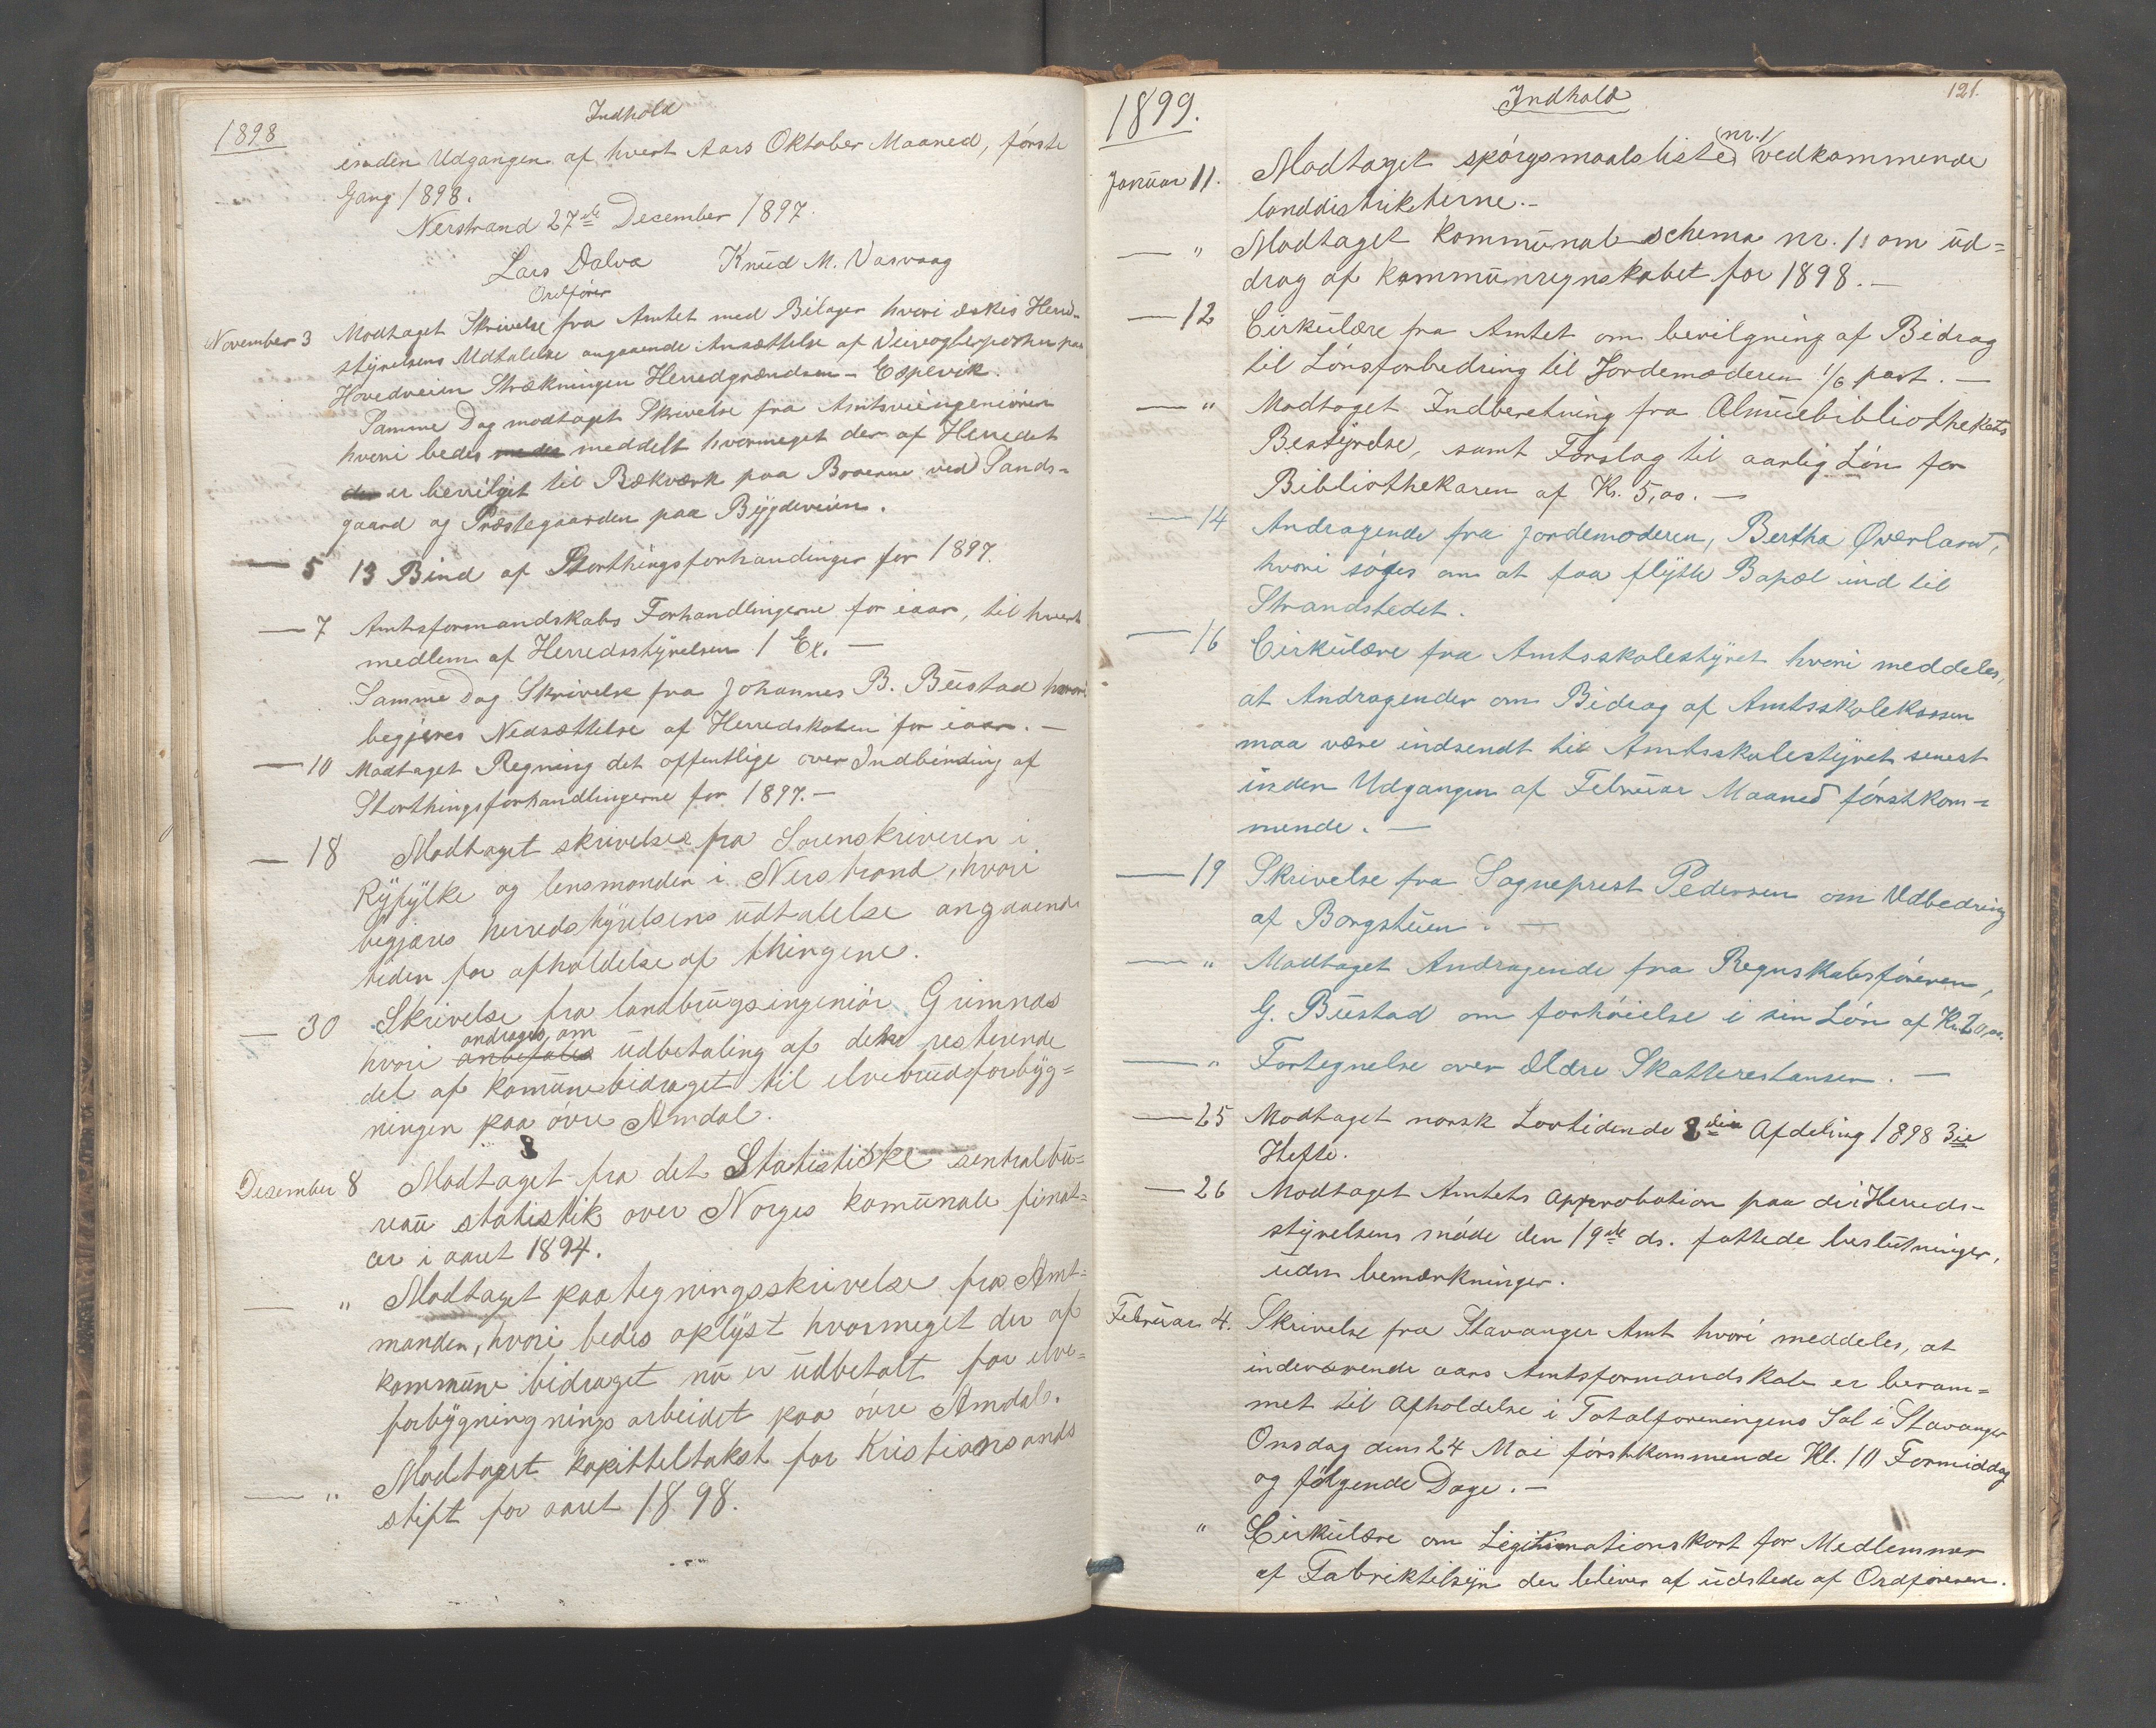 1898
Indhold
inden Udgangen af hvert Aars Oktober Maaned, første
Gang 1898.
Nerstrand 27de December 1897.
Lars Dalva Knud M. Vasvaag
Ordfører
November 3 Modtaget Skrivelse fra Amtet med Bilager hvori æskes Herred-
styrelsens Udtalelse angaaende Ansættelse af Veivogter paa
Hovedveien Strækningen Herredgrændsen - Espevik.
Samme Dag modtaget Skrivelse fra Amtsveiingeniøren
hvori bedes meddelt hvormeget der af Herredet
er bevilget til Rækværk paa Broerne ved Sands-
gaard og Præstegaarden paa Bygdeveien.
— 5 13 Bind af Storthingsforhandinger for 1897.
— 7 Amtsformandskabs Forhandlingerne for iaar, til hvert
medlem af Herredsstyrelsen 1 Ex. —
Samme Dag Skrivelse fra Johannes B. Bustad hvori
begjeres Nedsættelse af Herredskaten for iaar. —
— 10 Modtaget Regning det offentlige over Indbinding af
Storthingsforhandlingerne for 1897. —
— 18 Modtaget skrivelse fra Sorenskriveren i
Ryfylke og lensmanden i Nerstrand, hvori
begjæres herredstyrelsens udtalelse angaaende
tiden for afholdelse af thingene.
— 30 Skrivelse fra landbrugsingeniør Grimnæs
andrages om
hvori anbefales udbetaling af dette resterende
del af komunebidraget til elvebrudsforbyg=
ningen paa øvre Amdal.
Desember 8 Modtaget fra det Statistiske sentralbu=
reau statistik over Norges komunale finat=
cer i aaret 1894.
— " Modtaget paategningsskrivelse fra Amt=
manden, hvori bedes oplyst hvormeget der af
kommune bidraget nu er udbetalt for elve=
forbygningnings arbeidet paa øvre Amdal.
— " Modtaget kapitteltakst for Kristiansands
stift for aaret 1898.
1899.
Indhold
121.
nr. 1
Januar 11. Modtaget spørgsmaalsliste vedkommende
landdistrikterne. -
— " Modtaget kommunal schema nr. 1 om ud=
drag af kommunregnskabet for 1898. —
— 12 Cirkulære fra Amtet om bevilgning af Bidrag
til Lønsforbedring til Jordemoderen 1/6 part. —
— " Modtaget Indberetning fra Almuebibliothekets
Bestyrelse, samt Forslag til aarlig Løn for
Bibliothekaren af Kr. 5,00. —
— 14 Andragende fra Jordemoderen, Bertha Øverland,
hvori søges om at faa flytte Bopæl ind til
Strandstedet.
— 16 Cirkulære fra Amtsskolestyret hvori meddeles,
at Andragender om Bidrag af Amtsskolekassen
maa være indsendt til Amtsskolestyret senest
inden Udgangen af Februar Maaned førstkom-
mende. —
— 19 Skrivelse fra Sogneprest Pedersen om Udbedring
af Borgstuen. —
— " Modtaget Andragende fra Regnskabsføreren,
G. Bustad om forhøielse i sin Løn af Kr. 20,00.
— " Fortegnelse over ældre Skatterestanser. —
— 25 Modtaget norsk Lovtidende 2den Afdeling 1898 3ie
Hefte.
— 26 Modtaget Amtets Approbation paa de i Herreds-
styrelsens møde den 19de ds. fattede beslutninger,
uden bemærkninger.
Februar 4. Skrivelse fra Stavanger Amt hvori meddeles, at
indeværende aars Amtsformandskab er beram=
met til Afholdelse i Totalforeningens Sal i Stavanger
Onsdag dens 24 Mai førstkommende Kl. 10 Formiddag
og følgende Dage. —
" Cirkulære om Legitimationskort for Medlemmer
af Fabriktilsyn der bliver af udstede af Ordføreren.